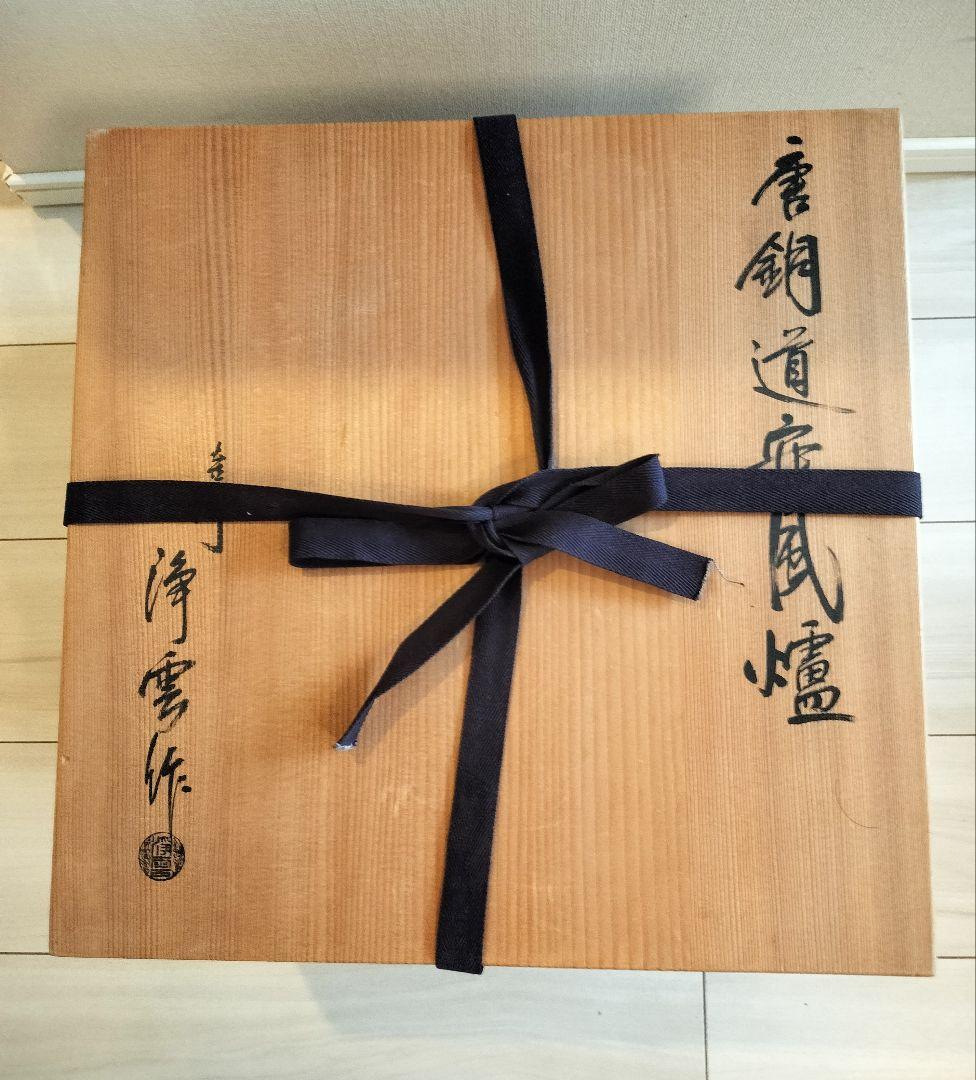 唐銅道安風爐
浄雲作